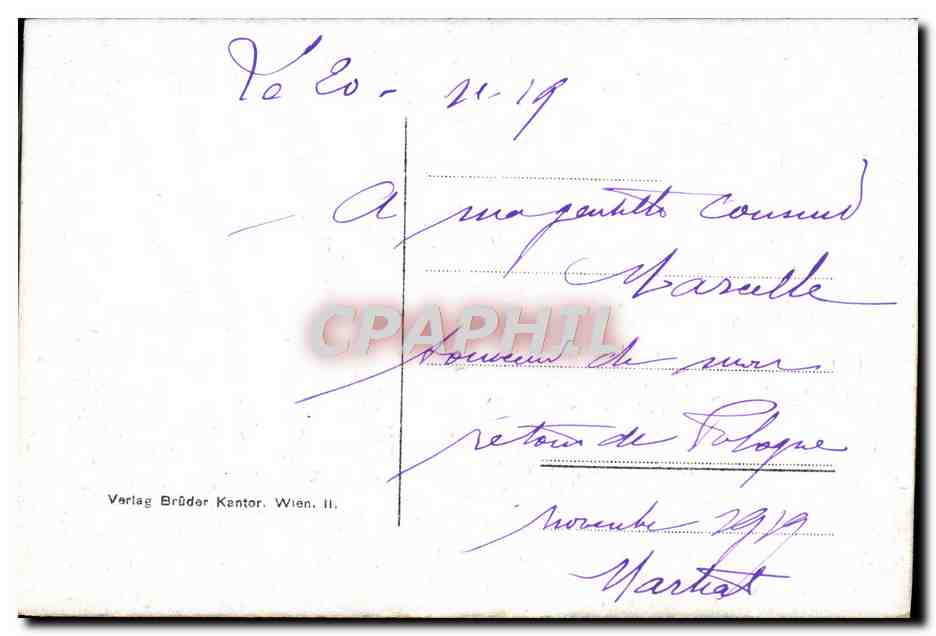 Le 20 - 11-19
A ma gentille cousine
Marcelle
souvenir de mon
retour de Pologne
novembre 1919
Martial
CPAPHIL
Verlag Brüder Kantor. Wien. II.